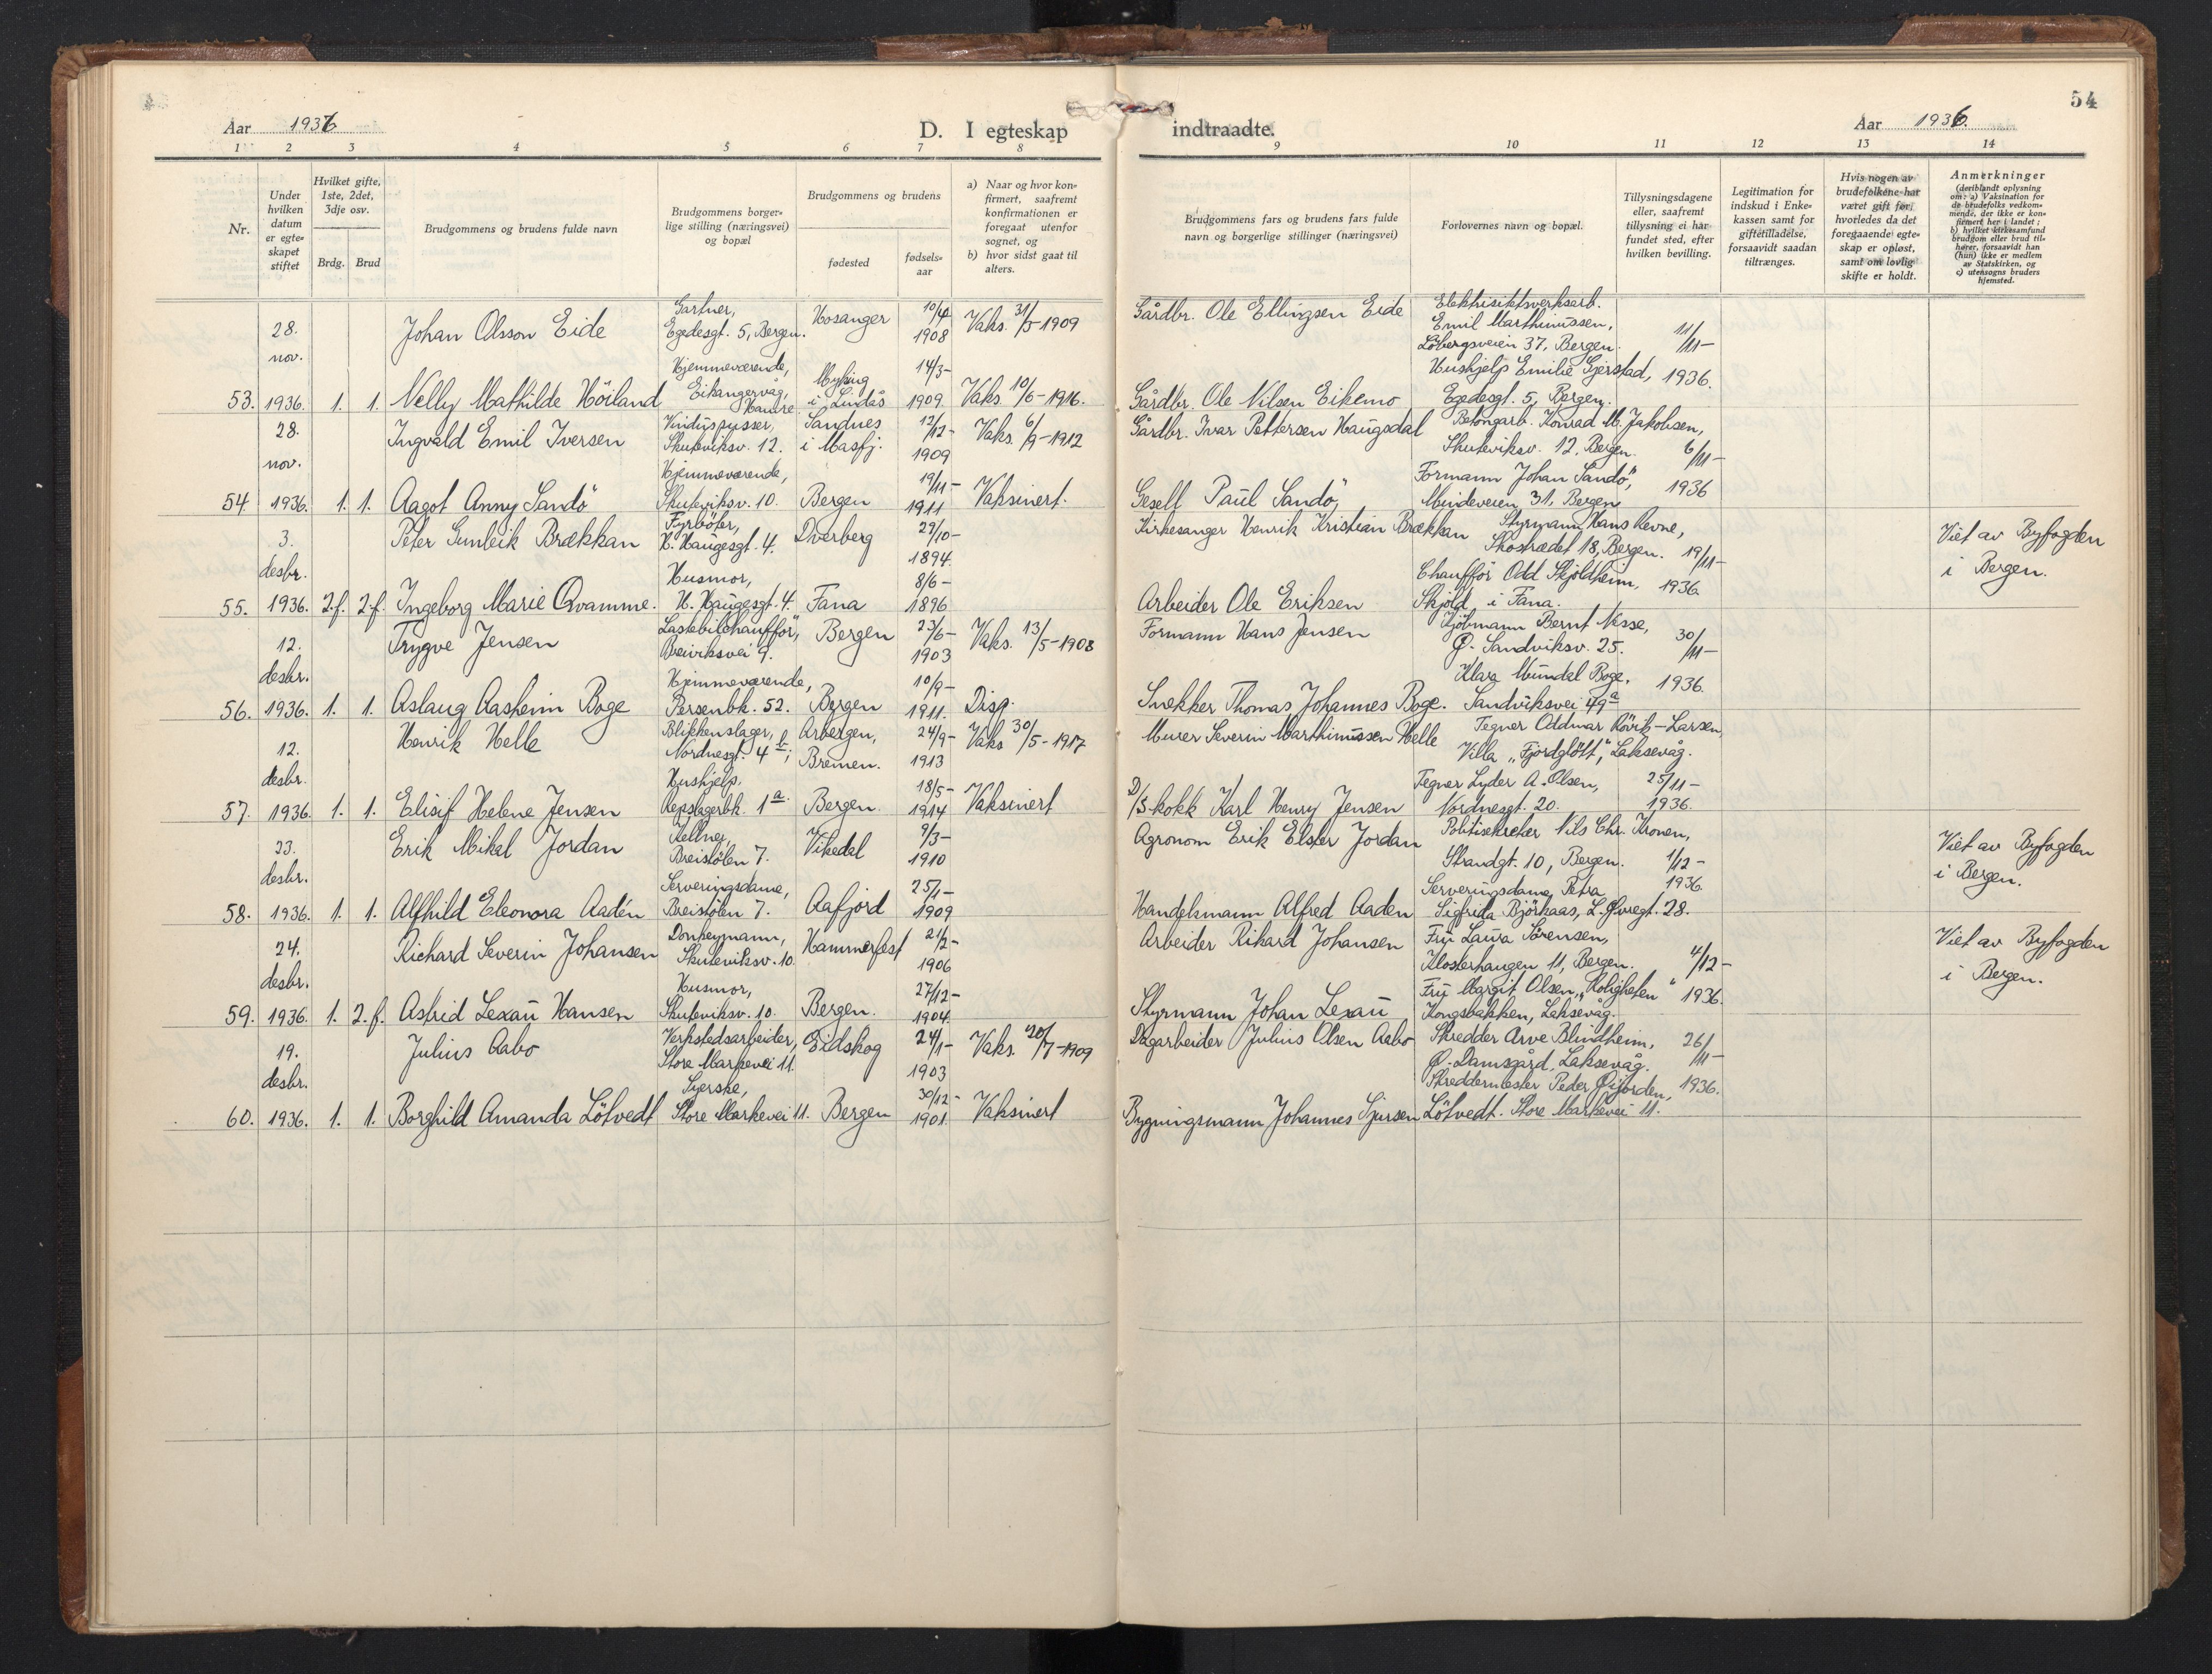 54
Aar 1936
D. I egteskap indtraadte.
Aar 1936.
1 2 3 4 5 6 7 8 9 10 11 12 13 14
Nr.
Under hvilken datum er egte-skapet stiftet
Hvilket gifte, 1ste, 2det, 3dje osv.
Brdg. Brud
Brudgommens og brudens fulde navn
Brudgommens borger-lige stilling (næringsvei) og bopæl
Brudgommens og brudens
fødested
fødsels-aar
a) Naar og hvor kon-firmert, saafremt konfirmationen er foregaat utenfor sognet, og
b) hvor sidst gaat til alters.
Brudgommens fars og brudens fars fulde navn og borgerlige stillinger (næringsvei)
Forlovernes navn og bopæl.
Tillysningsdagene eller, saafremt tillysning ei har fundet sted, efter hvilken bevilling.
Legitimation for indskud i Enke-kassen samt for giftetilladelse, forsaavidt saadan tiltrænges.
Hvis nogen av brudefolkene har været gift før, hvorledes da det foregaaende egte-skap er opløst, samt om lovlig skifte er holdt.
Anmerkninger
(deriblandt oplysning om: a) Vaksination for de brudefolks vedkom-mende, der ikke er kon-firmert her i landet; b) hvilket kirkesamfund brudgom eller brud til-hører, forsaavidt han (hun) ikke er medlem av Statskirken, og c) utensogns bruders hjemsted.
53. 28. nov. 1936. 1. 1.
Johan Olsson Eide
Gartner, Egedesgt. 5, Bergen.
Hosanger
10/4 1908
Vaks. 31/5-1909
Gårdbr. Ole Ellingsen Eide
Elektrisitetsverksarb. Emil Marthinussen, Löbergsveien 37, Bergen.
11/11- 1936.
Nelly Mathilde Höiland
Hjemmeværende, Eikangervåg, Hamre
Myking i Lindås
14/3- 1909
Vaks. 10/6-1916.
Gårdbr. Ole Nilsen Eikemo
Hushjelp Emilie Gjerstad, Egedesgt. 5, Bergen.
54 28. nov. 1936. 1. 1.
Ingvald Emil Iversen
Vinduspusser, Skuteviksv. 12.
Sandnes i Masfj.
12/12- 1909
Vaks. 6/9-1912
Gårdbr. Ivar Pettersen Haugsdal
Betongarb. Konrad M. Jakobsen, Skuteviksv. 12, Bergen.
6/11- 1936
Aagot Anny Sandö
Hjemmeværende, Skuteviksv. 10.
Bergen
19/11- 1911
Vaksinert.
Gesell Paul Sandö,
Formann Johan Sandö, Mindeveien 31, Bergen
55. 3. desbr. 1936. 2.f. 2.f.
Peter Gunleik Brækkan
Fyrböter, H. Haugesgt. 4.
Dverberg
29/10- 1894.
Kirkesanger Henrik Kristian Brækkan
Styrmann Hans Revne, Skostrædet 18, Bergen.
19/11- 1936
Viet av Byfogden i Bergen.
Ingeborg Marie Qvamme.
Husmor, H. Haugesgt. 4.
Fana
8/6- 1896
Arbeider Ole Eriksen
Chaufför Odd Skjoldheim, Skjold i Fana.
56. 12. desbr. 1936. 1. 1.
Trygve Jensen
Lastebilchauffför, Breiviksvei 9.
Bergen
23/6- 1903
Vaks. 13/5-1908
Formann Hans Jensen
Kjöbmann Bernt Nesse, Ø. Sandviksv. 25.
30/11- 1936.
Aslaug Aasheim Boge
Hjemmeværende, Persenbk. 52.
Bergen
10/9- 1911.
Disp.
Snekker Thomas Johannes Boge.
Klara Mundal Boge, Sandviksvei 49a
57. 12. desbr. 1936. 1. 1.
Henrik Helle
Blikkenslager, Nordnesgt. 4b;
Arbergen, Bremen.
24/9- 1913
Vaks 30/5-1917
Murer Severin Marthinussen Helle
Tegner Oddmar Rövik-Larsen, Villa „Fjordglött", Laksevåg.
25/11- 1936.
Elisif Helene Jensen
Hushjelp, Repslagerbk. 1a.
Bergen.
18/5- 1914
Vaksinert
D/S. kokk Karl Henry Jensen
Tegner Lyder A. Olsen, Nordnesgt. 20.
58. 23. desbr. 1936. 1. 1.
Erik Mikal Jordan
Kellner, Breistölen 7.
Vikedal
9/3- 1910
Agronom Erik Elster Jordan
Politisekretær Nils Chr. Kronen, Strandgt. 10, Bergen.
1/12- 1936.
Viet av Byfogden i Bergen.
Alfhild Eleonora Aadén
Serveringsdame, Breistölen 7.
Aafjord
25/1- 1909
Handelsmann Alfred Aaden
Serveringsdame Petra Sigfrida Björkaas, L. Øvregt. 28.
59. 24. desbr. 1936. 1. 2.f.
Richard Severin Johansen
Donkeymann, Skuteviksv. 10.
Hammerfest
21/2- 1906
Arbeider Rikard Johansen
Fru Laura Sörensen, Klosterhaugen 11, Bergen.
4/12- 1936.
Viet av Byfogden i Bergen.
Astrid Lexau Hansen
Husmor, Skuteviksv. 10.
Bergen.
27/12- 1904.
Styrmann Johan Lexau
Fru Margit Olsen, „Roligheten" Kongsbakken, Laksevåg.
60. 19. desbr. 1936. 1. 1.
Julius Aabo
Verkstedsarbeider, Store Markevei 11.
Eidskog
24/1- 1903
Vaks. 20/7-1909
Dagarbeider Julius Olsen Aabo
Skredder Arve Blindheim, Ø. Damsgård, Laksevåg.
26/11- 1936.
Borghild Amanda Lötvedt
Syerske, Store Markevei 11.
Bergen
30/12- 1901.
Vaksinert
Bygningsmann Johannes Sjursen Lötvedt.
Skreddermester Peder Øijorden, Store Markevei 11.